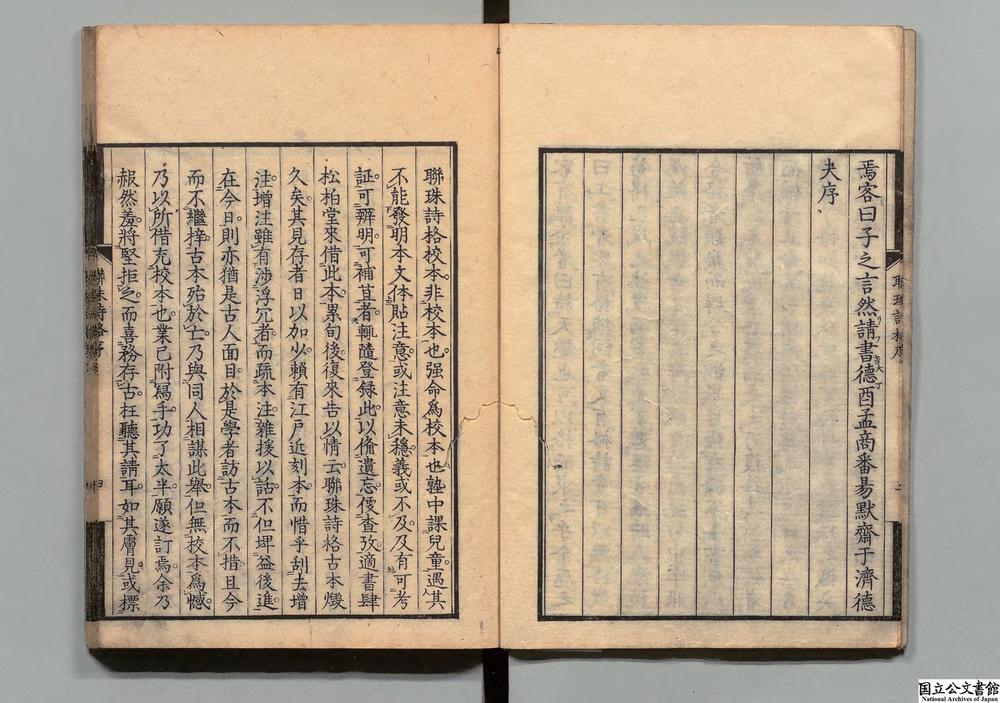 焉客曰子之言然請書德酉孟商番昜默齋于濟德
夫序
聯珠詩格序
二
聯珠詩格校本非校本也强命爲校本也塾中課兒童遇其
不能發明本文体貼注意或注意未穩義或不及及有可考
証可辨明可補苴者輒隨登録此以備遺忘便查攷適書肆
松柏堂來借此本累旬後復來告以情云聯珠詩格古本燬
久矣其見存者日以加少賴有江戸近刻本而惜乎刮去增
注增注雖有涉浮冗者而疏本注雜援以話不但埤益後進
在今日則亦猶是古人面目於是學者訪古本而不措且今
而不繼梓古本殆於亡乃與同人相謀此舉但無校本爲憾
乃以所借充校本也業已附寫手功了太半願遂訂焉余乃
赧然羞將堅拒之而喜務存古枉聽其請耳如其膚見或標
聯珠詩格序
国立公文書館
National Archives of Japan